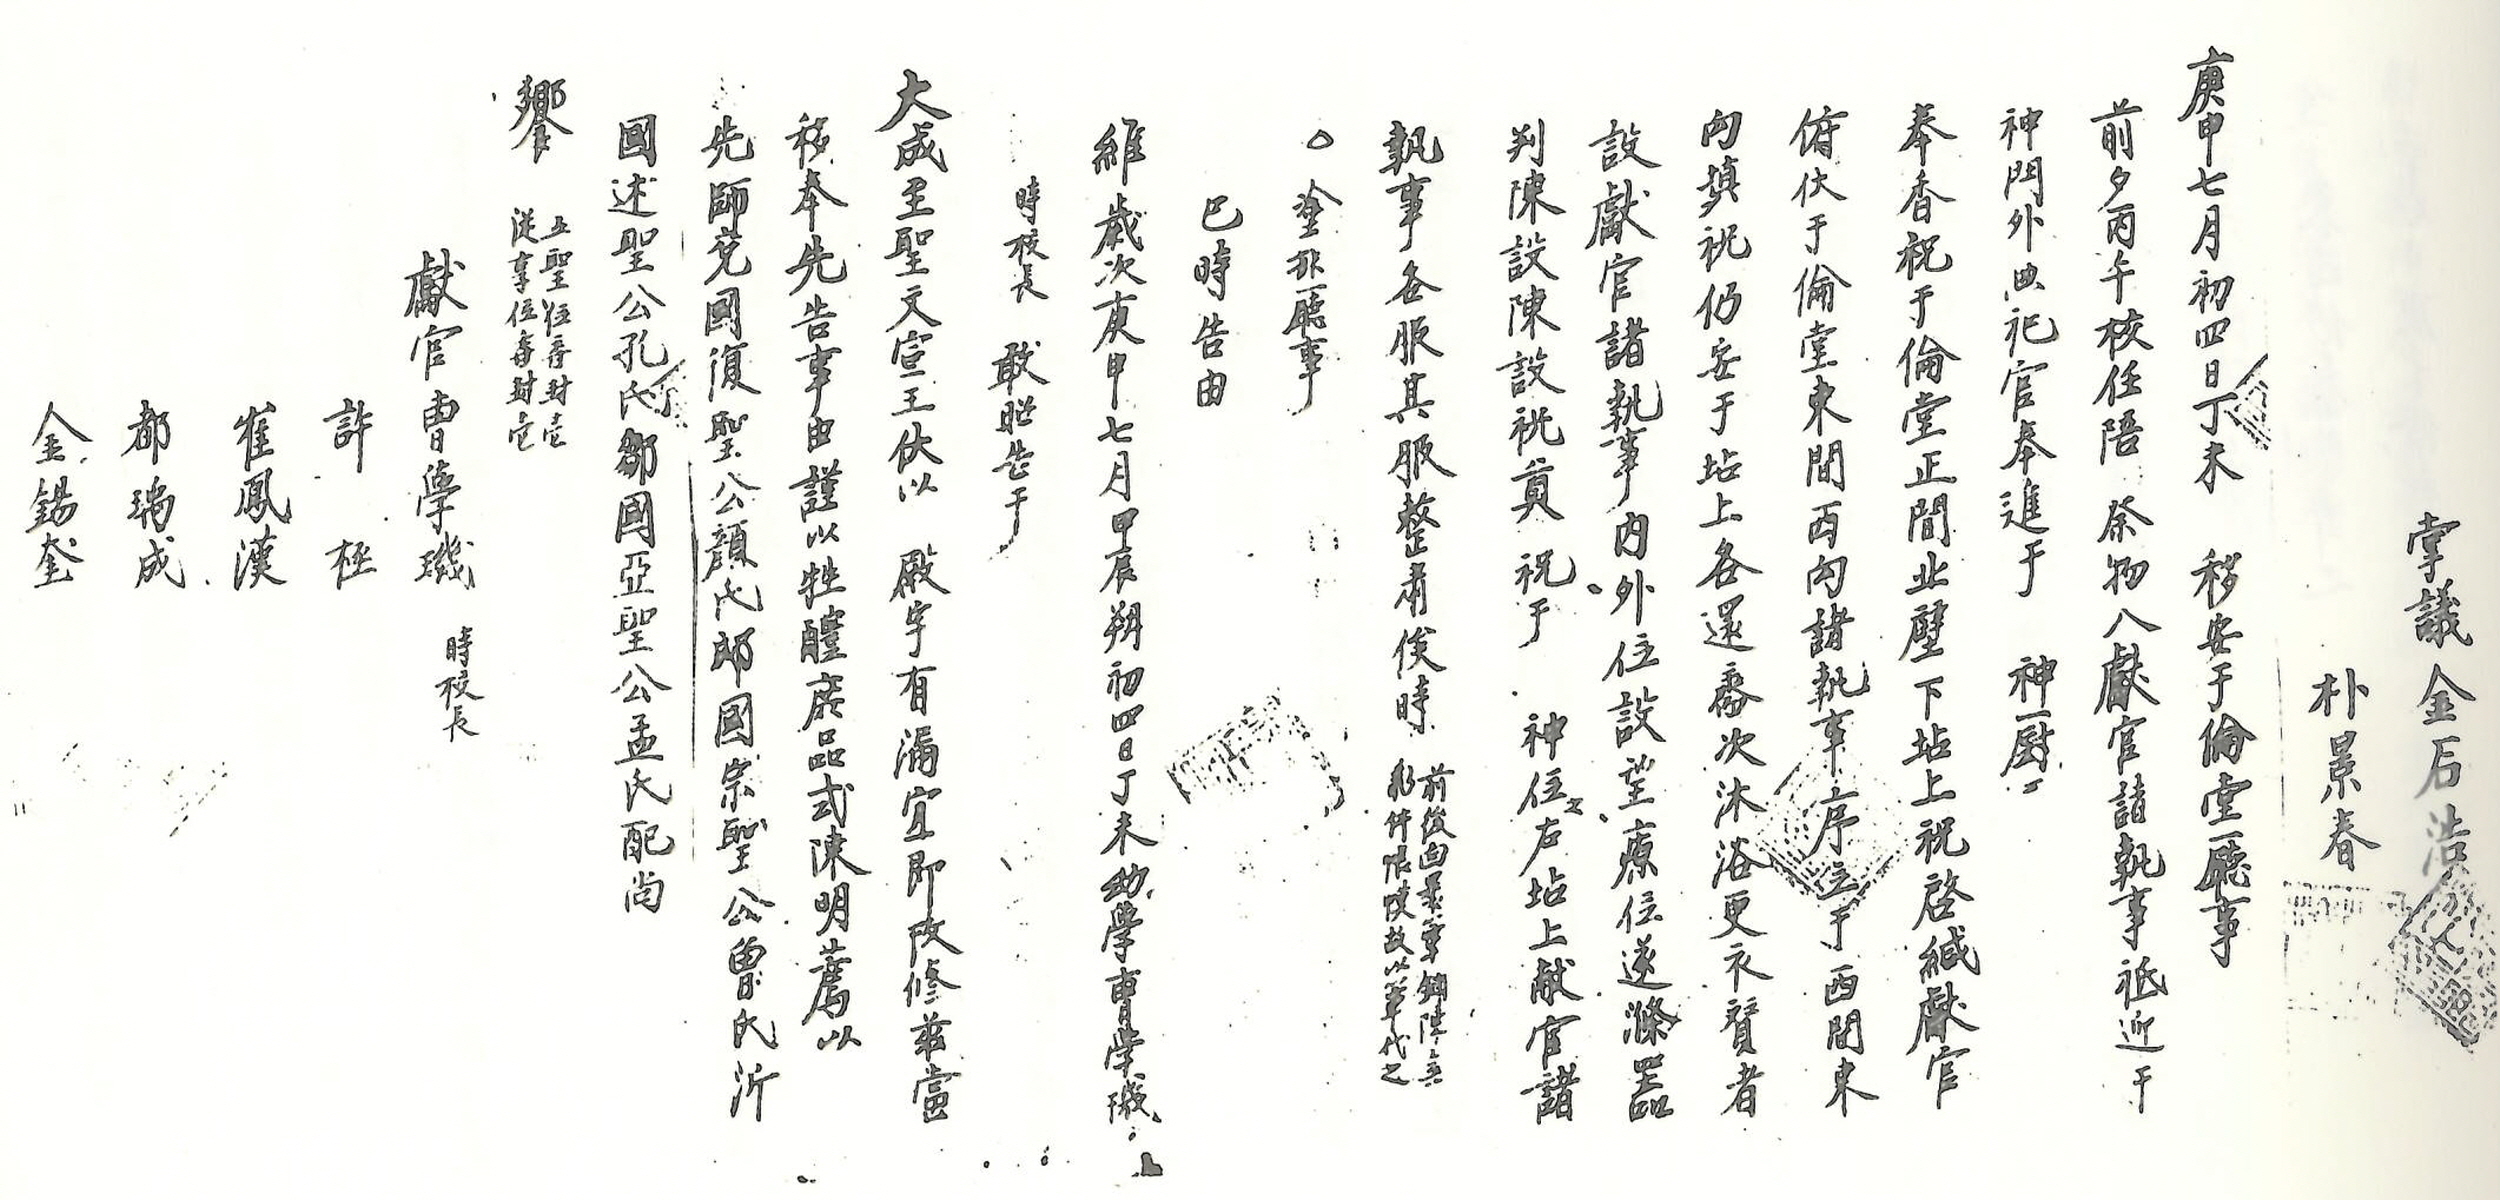 掌議 金石浩
朴景春
庚申七月初四日丁未 移安于倫堂廳事
前夕丙午校任陪 祭物入獻官諸執事祗迎于
神門外典祀官奉進于 神厨
奉香祝于倫堂正間北壁下坫上祝啓緘獻官
俯伏于倫堂東間西向諸執事序立于西間東
向填祝仍安于坫上各還齋次沐浴更衣贊者
設獻官諸執事內外位設望瘞位遂滌器
判陳設陳設祝奠 祝于 神位之右坫上獻官諸
執事各服其服整肅俟時
○ 塗排廳事
巳時告由
維歲次庚申七月甲辰朔初四日丁未幼學曺學璣
時校長 敢昭告于
大成至聖文宣王伏以 殿宇有漏宜即改修玆當
移奉先告事由謹以牲醴庶品式陳明薦以
先師兗國復聖公顏氏郕國宗聖公曾氏沂
國述聖公孔氏鄒國亞聖公孟氏配尚
饗 五聖位香封壱
從享位香封壱
獻官 曺學璣 時校長
許極
崔鳳漢
都瑞成
金錫奎